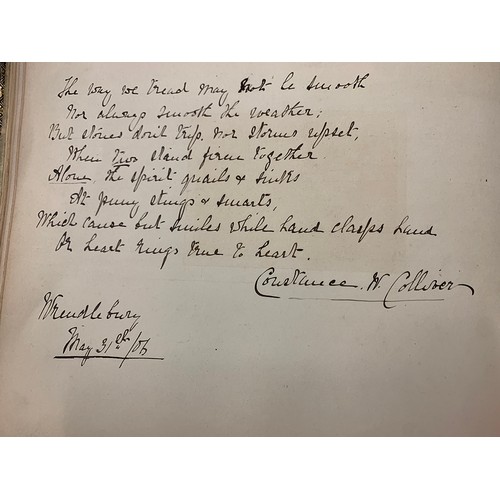 The way we tread may not be smooth
Nor always smooth the weather;
But stones don't trip, nor storms upset,
When two stand firm together
Alone the spirit quails & sinks
At puny stings & smarts,
Which cause but smiles while hand clasps hand
Or heart rings true to heart.
Constance W. Colliver
Wrendlebury
May 31st/06